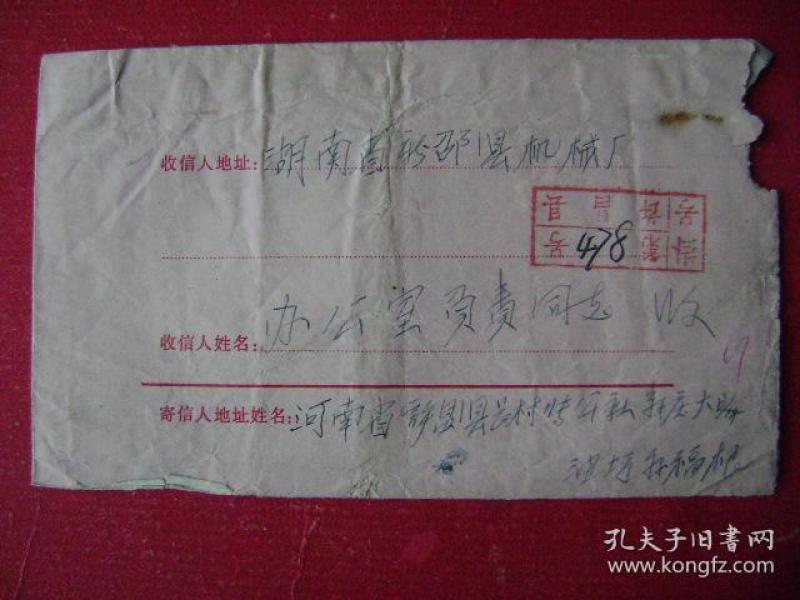 收信人地址:湖南省新邵县机械厂
许昌县
号 第478号
收信人姓名:办公室负责同志 收
寄信人地址姓名:河南省许昌县 村 公社 庄大队
福根
孔夫子旧书网
www.kongfz.com